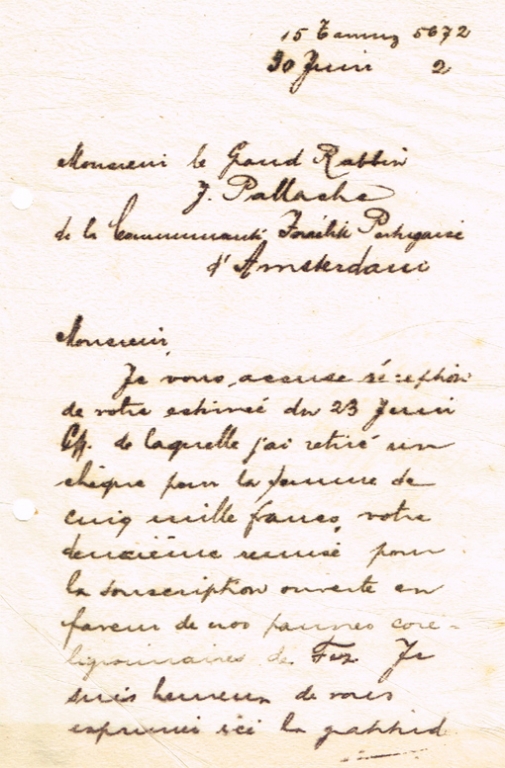 15 Tamuz 5672
30 Juin 2
Monsieur le Grand Rabbin
J. Pallache
de la Communauté Israélite Portugaise
d'Amsterdam
Monsieur,
Je vous accuse réception
de votre estimée du 23 Juin
de laquelle j'ai retiré un
chèque pour la somme de
cinq mille francs, votre
deuxième remise pour
la souscription ouverte en
faveur de nos pauvres core-
ligionnaires de Fez Je
suis heureux de vous
exprimer ici la gratitud